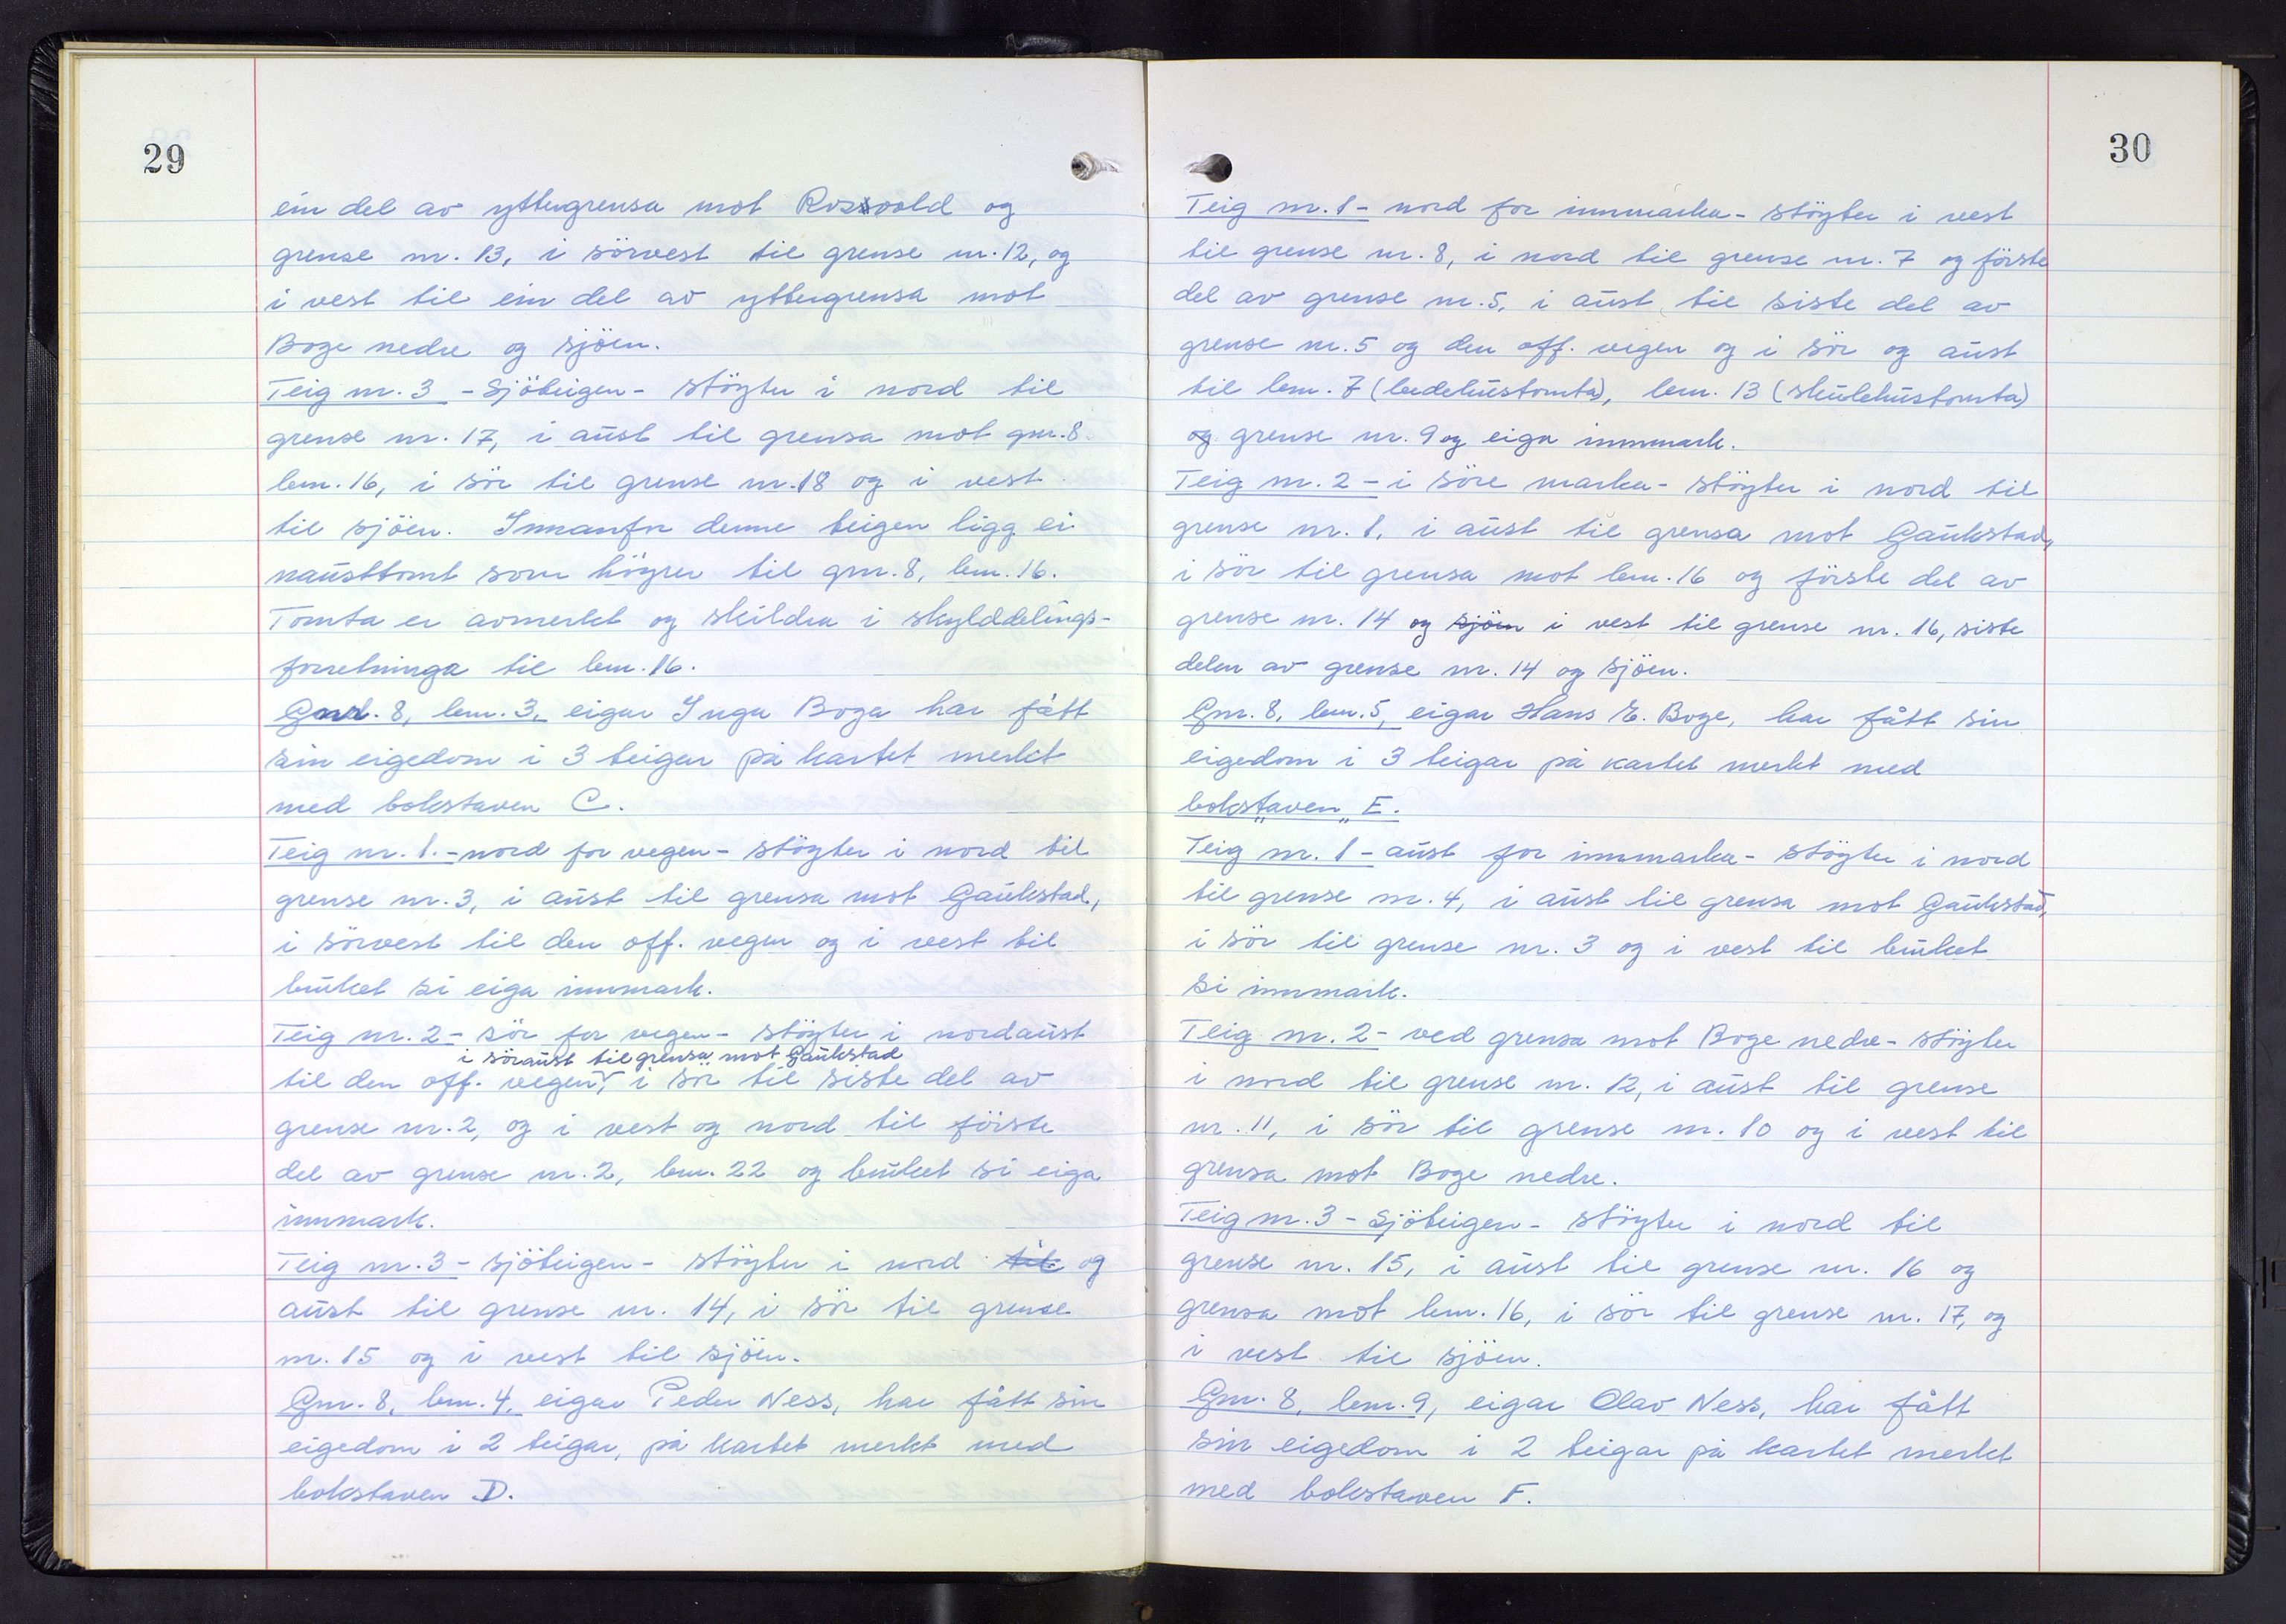 29
ein del av yttergrensa mot Rossvold og
grense nr. 13, i sörvest til grense nr. 12, og
i vest til ein del av yttergrensa mot
Boge nedre og sjöen.
Teig nr. 3 - Sjöteigen - stöyter i nord til
grense nr. 17, i aust til grensa mot gnr. 8.
bnr. 16, i sör til grense nr. 18 og i vest
til sjöen. Innanfor denne teigen ligg ei
nausttomt som höyrer til gnr. 8, bnr. 16.
Tomta er avmerkt og skildra i skylddelings-
forretninga til bnr. 16.
Gnr. 8, bnr. 3, eigar Inga Boga har fått
sin eigedom i 3 teigar på kartet merkt
med bokstaven C.
Teig nr. 1. - nord for vegen - stöyter i nord til
grense nr. 3, i aust til grensa mot Gaukstad,
i sörvest til den off. vegen og i vest til
bruket si eiga innmark.
Teig nr. 2 - sör for vegen - stöyter i nordaust
i söraust til grensa mot Gaukstad
til den off. vegen, i sör til siste del av
grense nr. 2, og i vest og nord til förste
del av grense nr. 2, bnr. 22 og bruket si eiga
innmark.
Teig nr. 3 - sjöteigen - stöyter i nord til og
aust til grense nr. 14, i sör til grense
nr. 15 og i vest til sjöen.
Gnr. 8, bnr. 4, eigar Peder Ness, har fått sin
eigedom i 2 teigar, på kartet merkt med
bokstaven D.
30
Teig nr. 1 - nord for innmarka - stöyter i vest
til grense nr. 8, i nord til grense nr. 7 og förste
del av grense nr. 5, i aust til siste del av
grense nr. 5 og den off. vegen og i sör og aust
til bnr. 7 (bedehustomta), bnr. 13 (skulehustomta)
og grense nr. 9 og eiga innmark.
Teig nr. 2 - i söre marka - stöyter i nord til
grense nr. 1, i aust til grensa mot Gaukstad,
i sör til grensa mot bnr. 16 og förste del av
grense nr. 14 og sjöen i vest til grense nr. 16, siste
delen av grense nr. 14 og sjöen.
Gnr. 8, bnr. 5, eigar Hans E. Boge, har fått sin
eigedom i 3 teigar på kartet merkt med
bokstaven "E.
Teig nr. 1 - aust for innmarka - stöyter i nord
til grense nr. 4, i aust til grensa mot Gaukstad,
i sör til grense nr. 3 og i vest til bruket
si innmark.
Teig nr. 2 - ved grensa mot Boge nedre - stöyter
i nord til grense nr. 12, i aust til grense
nr. 11, i sör til grense nr. 10 og i vest til
grensa mot Boge nedre.
Teig nr. 3 - Sjöteigen - stöyter i nord til
grense nr. 15, i aust til grense nr. 16 og
grensa mot bnr. 16, i sör til grense nr. 17, og
i vest til sjöen.
Gnr. 8, bnr. 9, eigar Olav Ness, har fått
sin eigedom i 2 teigar på kartet merkt
med bokstaven F.